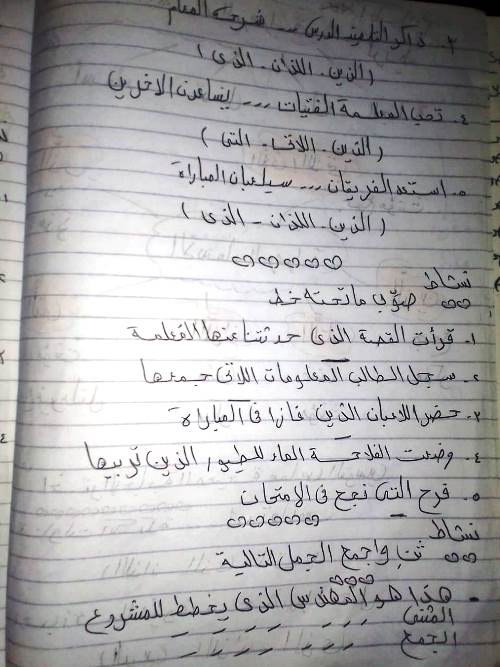 ٣. ذاكر التلميذ الدرس ... شرحه المعلم
(الذين - اللذان - الذى)
٤. تحب المعلمة الفتيات ... يساعدن الآخرين
(الذين - اللاتى - التى)
٥. استعد الفريقان ... سيلعبان المباراة
(الذين - اللذان - الذى)
نشاط
صوّبى ما تحته خط
١. قرأت القصة الذى حدثتنا عنها المعلمة
٢. سجل الطالب المعلومات اللاتى جمعها
٣. حضر اللاعبان الذين فازا فى المباراة
٤. وضعت الفلاحة الماء للطيور الذين تربيها
٥. فرح التى نجح فى الامتحان
نشاط
ثنِ واجمع الجمل التالية
- هذا هو المهندس الذى يخطط للمشروع
المثنى
الجمع